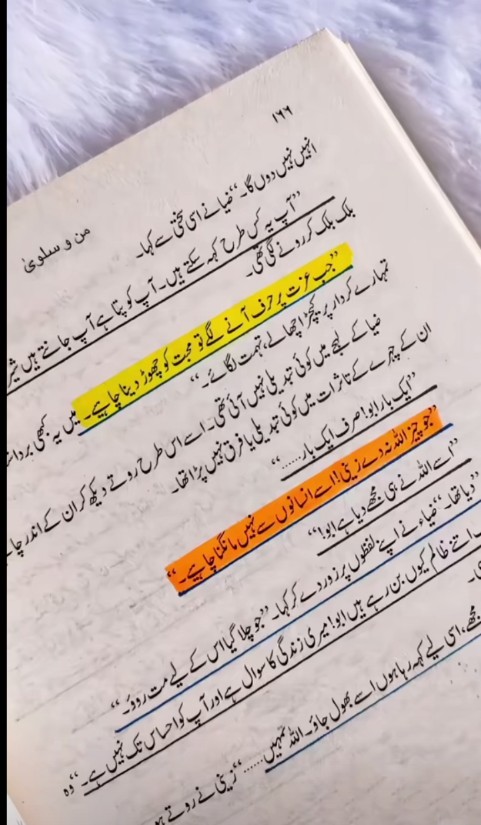 ۱۶۶
من و سلویٰ
انہیں نہیں دوں گا۔“ ضیا نے اسی سختی سے کہا۔
”آپ یہ کس طرح کہہ سکتے ہیں۔ آپ کو پتا ہے آپ جانتے ہیں
بلک بلک کر رونے لگی تھی۔
”جب عزت پر حرف آنے لگے تو محبت کو چھوڑ دینا چاہیے۔ میں یہ کبھی
تمہارے کردار پر کیچڑ اچھالے، تہمت لگائے۔“
ضیا کے لہجے میں کوئی تبدیلی نہیں آئی تھی۔ اسے اس طرح روتے دیکھ کر ان کے اندر
ان کے چہرے کے تاثرات میں کوئی تبدیلی یا فرق نہیں پڑا تھا۔
”ایک بار ابو! صرف ایک بار......“
”جو چیز اللہ نہ دے زینی! اسے انسانوں سے نہیں مانگنا چاہیے۔“
”اسے اللہ نے ہی مجھے دیا ہے ابو!“
”دیا تھا۔“ ضیاء نے اپنے لفظوں پر زور دے کر کہا۔ ”جو چلا گیا اس کے لیے مت روؤ۔“
اتنے ظالم کیوں بن رہے ہیں ابو! میری زندگی کا سوال ہے اور آپ کو احساس تک نہیں ہے۔“ وہ
مجھے، اسی لیے کہہ رہا ہوں اسے بھول جاؤ۔ اللہ تمہیں......“ زینی نے روتے